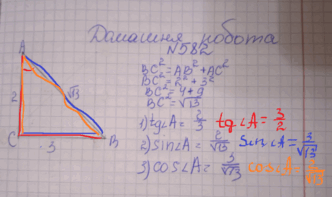 Домашня робота
N582
A
2
√13
C
3
B
BC²=AB²+AC²
BC²=2²+3²
BC²=4+9
BC=√13
1) tg∠A= 2/3 tg∠A= 3/2
2) sin∠A= 2/√13 sin∠A= 3/√13
3) cos∠A= 3/√13 cos∠A= 2/√13